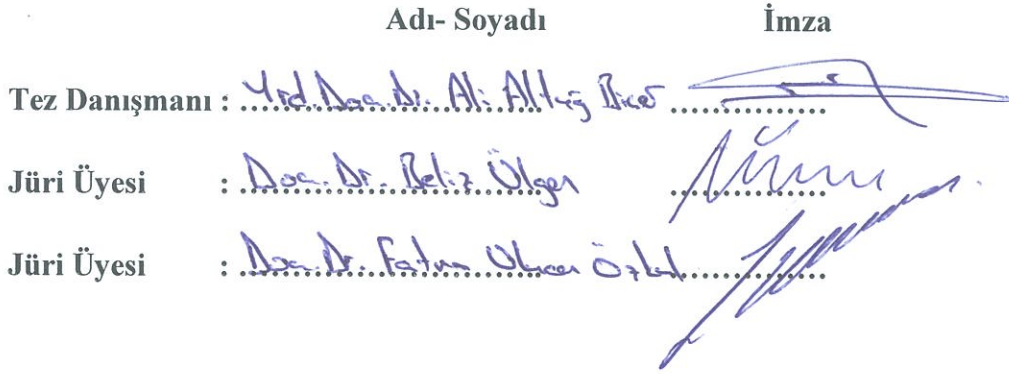 Adı- Soyadı İmza
Tez Danışmanı : Yrd. Doç. Dr. Ali Altuğ Biçer
Jüri Üyesi : Doc. Dr. Beliz Ülgen
Jüri Üyesi : Doc. Dr. Fatma